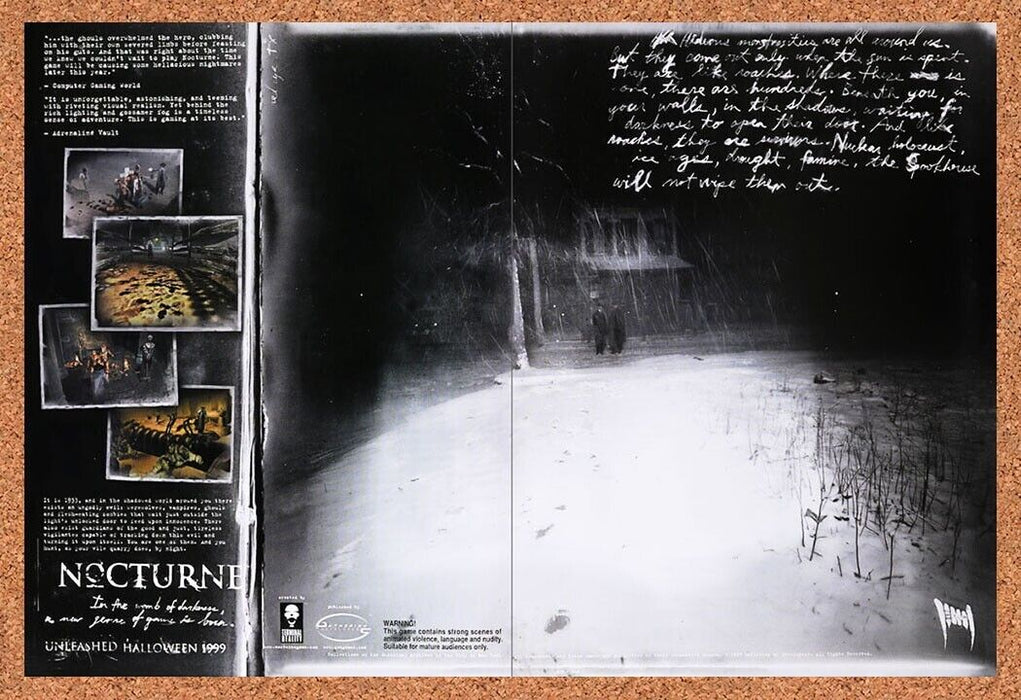 "...the ghouls overwhelmed the hero, clubbing
him with their own severed limbs before feasting
on his guts. And that was right about the time
we knew we couldn't wait to play Nocturne. This
game will be causing some hellacious nightmares
later this year."
- Computer Gaming World
"It is unforgettable, astonishing, and teeming
with riveting visual realism. Yet behind the
rich lighting and gossamer fog is a timeless
sense of adventure. This is gaming at its best."
- Adrenaline Vault
It is 1933, and in the shadowed world around you there
exists an ungodly evil: werewolves, vampires, ghouls
and flesheating zombies that wait just outside the
light's unlocked door to feed upon innocence. There
also exist guardians of the good and just, tireless
vigilantes capable of tracking down this evil and
turning it upon itself. You are one of them. And you
hunt, as your vile quarry does, by night.
NOCTURNE
In the womb of darkness,
a new genre of game is born.
UNLEASHED HALLOWEEN 1999
Hideous monstrosities are all around us.
But they come out only when the sun is spent.
They are like roaches. Where there is
one, there are hundreds. Beneath you, in
your walls, in the shadows, waiting for
darkness to open their door. And like
roaches, they are survivors. Nuclear holocaust,
ice ages, drought, famine, the Spookhouse
will not wipe them out.
created by
TERMINAL
REALITY
published by
GATHERING
WARNING!
This game contains strong scenes of
animated violence, language and nudity.
Suitable for mature audiences only.